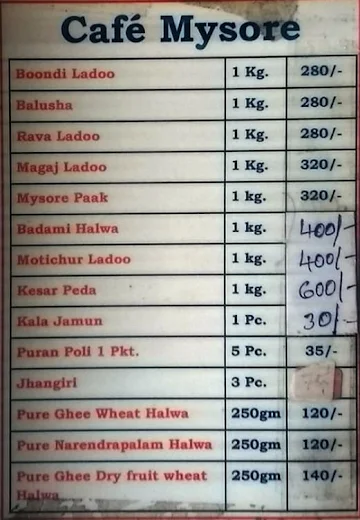 Café Mysore
Boondi Ladoo 1 Kg. 280/-
Balusha 1 Kg. 280/-
Rava Ladoo 1 Kg. 280/-
Magaj Ladoo 1 Kg. 320/-
Mysore Paak 1 kg. 320/-
Badami Halwa 1 kg. 400/-
Motichur Ladoo 1 kg. 400/-
Kesar Peda 1 kg. 600/-
Kala Jamun 1 Pc. 30/-
Puran Poli 1 Pkt. 5 Pc. 35/-
Jhangiri 3 Pc.
Pure Ghee Wheat Halwa 250gm 120/-
Pure Narendrapalam Halwa 250gm 120/-
Pure Ghee Dry fruit wheat 250gm 140/-
Halwa